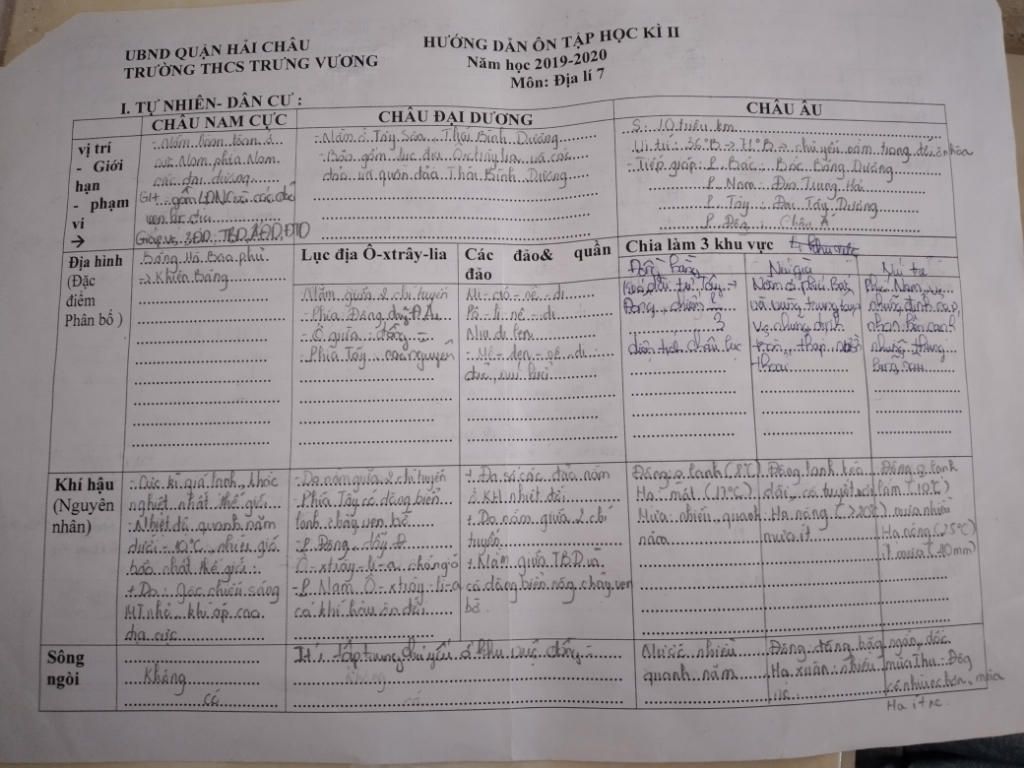 UBND QUẬN HẢI CHÂU
TRƯỜNG THCS TRƯNG VƯƠNG
HƯỚNG DẪN ÔN TẬP HỌC KÌ II
Năm học 2019-2020
Môn: Địa lí 7
I. TỰ NHIÊN- DÂN CƯ :
CHÂU NAM CỰC
CHÂU ĐẠI DƯƠNG
CHÂU ÂU
vị trí
- Giới
hạn
- phạm
vi
→
- Nằm hoàn toàn ở
cực Nam phía Nam
các đại dương
ven lục địa
- Nằm ở Tây Sán Thái Bình Dương
- Bao gồm lục địa Ôxtrâylia và các
đảo và quần đảo Thái Bình Dương
S: 10 triệu km
Vị trí: 36°B → 71°B → chủ yếu nằm trong đới ôn hòa
- Tiếp giáp: P. Bắc: Bắc Băng Dương
P. Nam: Địa Trung Hải
P. Tây: Đại Tây Dương
P. Đông: Châu Á
Địa hình
(Đặc
điểm
Phân bố )
Băng Hà Bao phủ
→ Khiên Băng
Lục địa Ô-xtrây-lia
- Nằm giữa 2 chí tuyến
- Phía Đông dãy
- Ở giữa: đồng =
- Phía Tây: cao nguyên
Các đảo& quần
đảo
Mi-crô-nê-di
Pô-li-nê-di
Niu di len
- Mê-đen-nê-di:
đảo núi lửa
Chia làm 3 khu vực
Đồng bằng
Kéo dài từ Tây →
Đông, chiếm 2/3
diện tích châu lục
Núi già
Nằm ở phía Bắc
và vùng trung tâm
vs những đỉnh
tròn, thấp, sườn
thoải
Núi trẻ
Phía Nam, vs
những đỉnh cao,
nhọn bên cạnh
những thung
lũng sâu
Khí hậu
(Nguyên
nhân)
- Cực kì giá lạnh, khắc
nghiệt nhất thế giới
- Nhiệt độ quanh năm
dưới -10°C, nhiều gió
bão nhất thế giới
+ Do: góc chiếu sáng
MT nhỏ, khí áp cao
địa cực
- Do nằm giữa 2 chí tuyến
- Phía Tây có dòng biển
lạnh chảy ven bờ
- P. Đông dãy
- P. Nam Ô-xtrây-li-a
có khí hậu ôn đới
+ Đa số các đảo nằm
ở KH nhiệt đới
+ Do nằm giữa 2 chí
tuyến
+ Nằm giữa TBD và
có dòng biển nóng chảy ven
bờ
Đông: lạnh (8°C)
Hạ: mát (17°C)
Mưa: nhiều quanh
năm
Đông lạnh kéo
dài, có tuyết
Hạ nóng (>20°C)
mưa ít
Đông lạnh
mưa nhiều
Hạ nóng (25°C)
ít mưa
Sông
ngòi
Không
có
tập trung chủ yếu ở khu vực đồng =
Nước nhiều
quanh năm
Đông đóng băng
Hạ xuân nhiều
nc
ngắn, dốc
mùa Thu-Đông
có nhiều nước hơn, mùa
Hạ ít nc